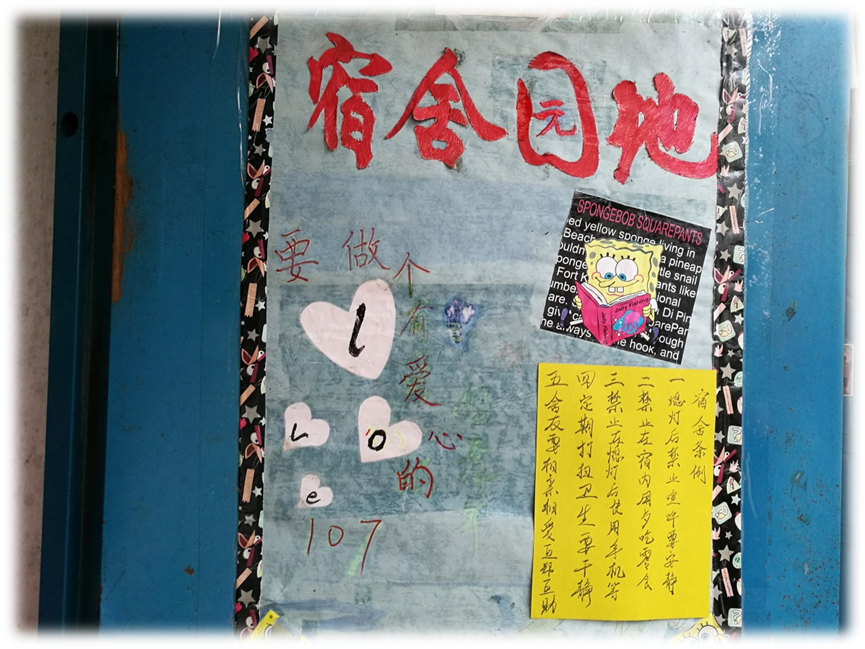 宿舍园地
要做个有爱心的
107
l
L o
e
SPONGEBOB SQUAREPANTS
ed yellow sponge living in
Beach a pineap
ouldn ttle snail
ponge ants like
Fort K sional
umbe Di Pin
are arePan
give ca ough
he always e hook, and
宿舍条例
一熄灯后禁止喧哗要安静
二禁止在宿内用歺吃零食
三禁止在熄灯后使用手机等
四定期打扫卫生要干静
五舍友要相亲相爱互帮互助